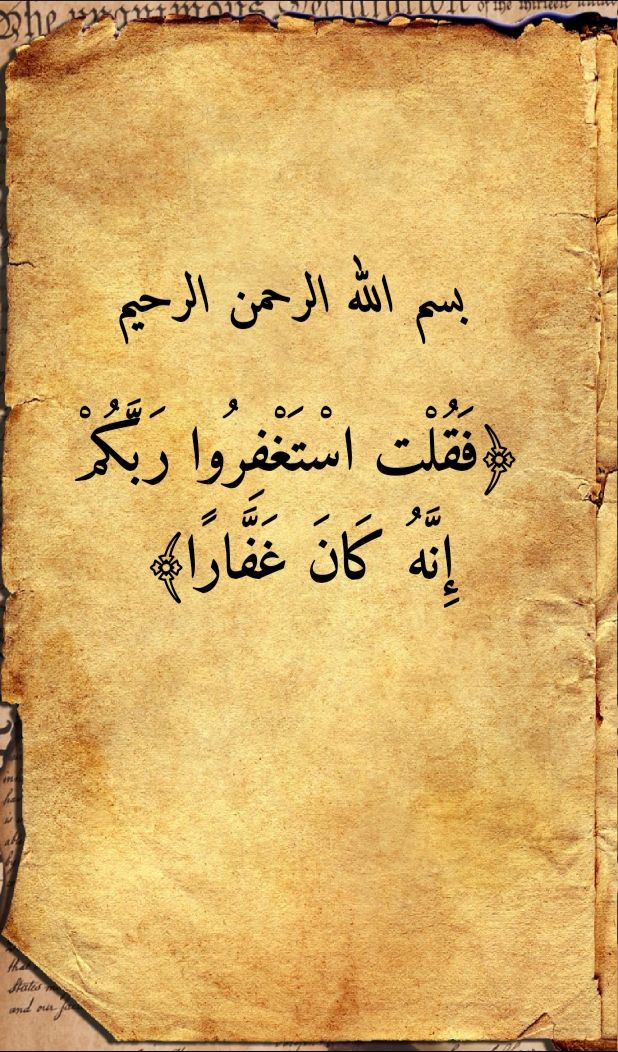 The unanimous Declaration of the thirteen united
بسم الله الرحمن الرحيم
﴿فَقُلْت اسْتَغْفِرُوا رَبَّكُمْ
إِنَّهُ كَانَ غَفَّارًا﴾
that
States
and our